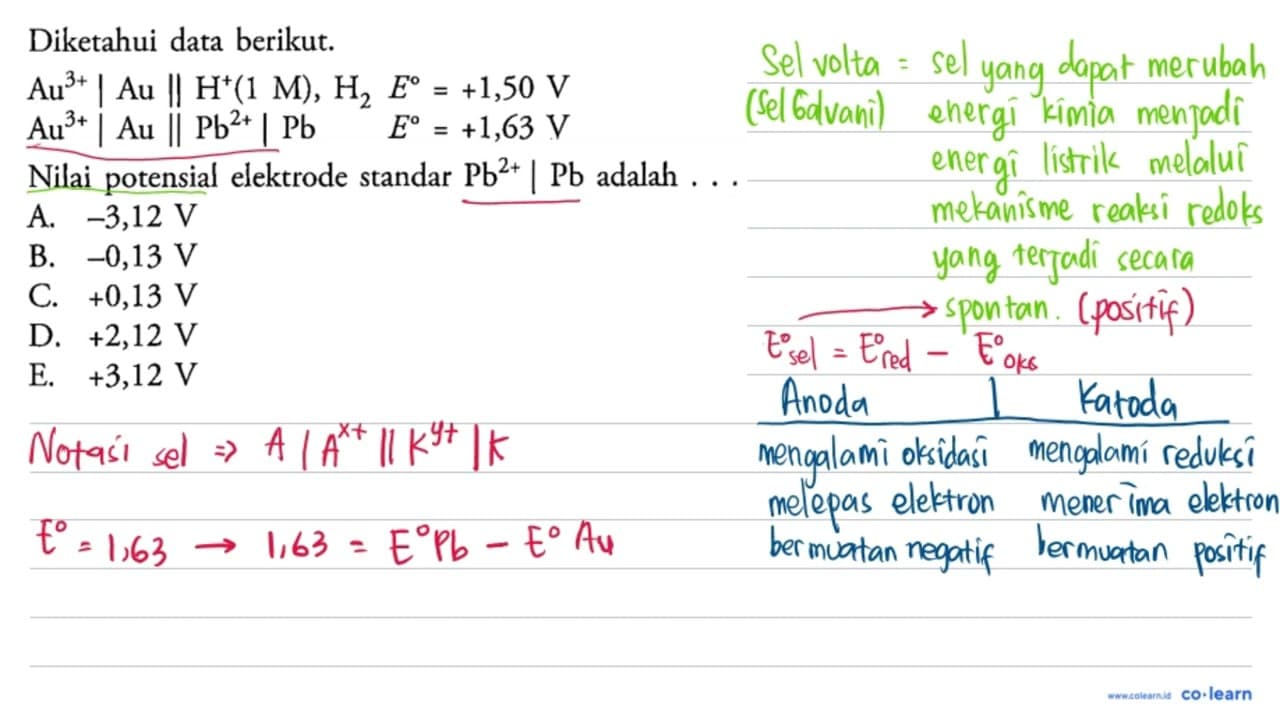 Diketahui data berikut.
Au³⁺ | Au || H⁺(1 M), H₂ E° = +1,50 V
Au³⁺ | Au || Pb²⁺ | Pb E° = +1,63 V
Nilai potensial elektrode standar Pb²⁺ | Pb adalah . . .
A. –3,12 V
B. –0,13 V
C. +0,13 V
D. +2,12 V
E. +3,12 V
Notasi sel ⇒ A / Aˣ⁺ || Kʸ⁺ | K
E° = 1,63 → 1,63 = E°Pb – E° Au
Sel volta = sel yang dapat merubah
(Sel Galvani) energi kimia menjadi
energi listrik melalui
mekanisme reaksi redoks
yang terjadi secara
→ spontan. (positif)
E°sel = E°red – E°oks
Anoda | Katoda
mengalami oksidasi mengalami reduksi
melepas elektron menerima elektron
bermuatan negatif bermuatan positif
www.colearn.id co·learn